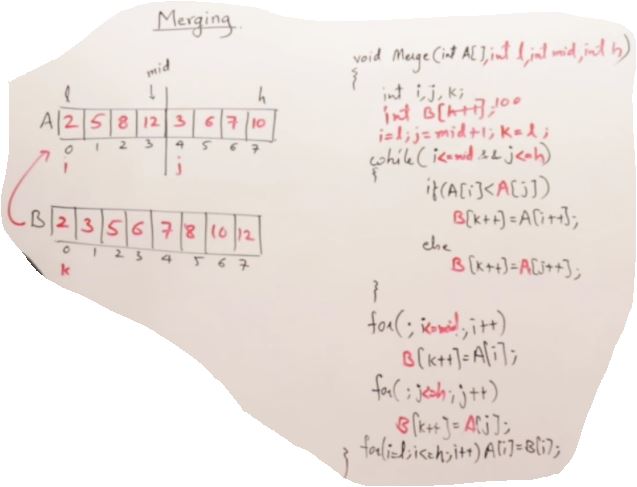 Merging
l mid h
A 2 5 8 12 3 6 7 10
0 1 2 3 4 5 6 7
i j
B 2 3 5 6 7 8 10 12
0 1 2 3 4 5 6 7
k
void Merge(int A[], int l, int mid, int h)
{
int i, j, k;
int B[h+1]; 100
i=l; j=mid+1; k=l;
while(i<=mid && j<=h)
{
if(A[i]<A[j])
B[k++]=A[i++];
else
B[k++]=A[j++];
}
for(; i<=mid; i++)
B[k++]=A[i];
for(; j<=h; j++)
B[k++]=A[j];
for(i=l; i<=h; i++) A[i]=B[i];
}